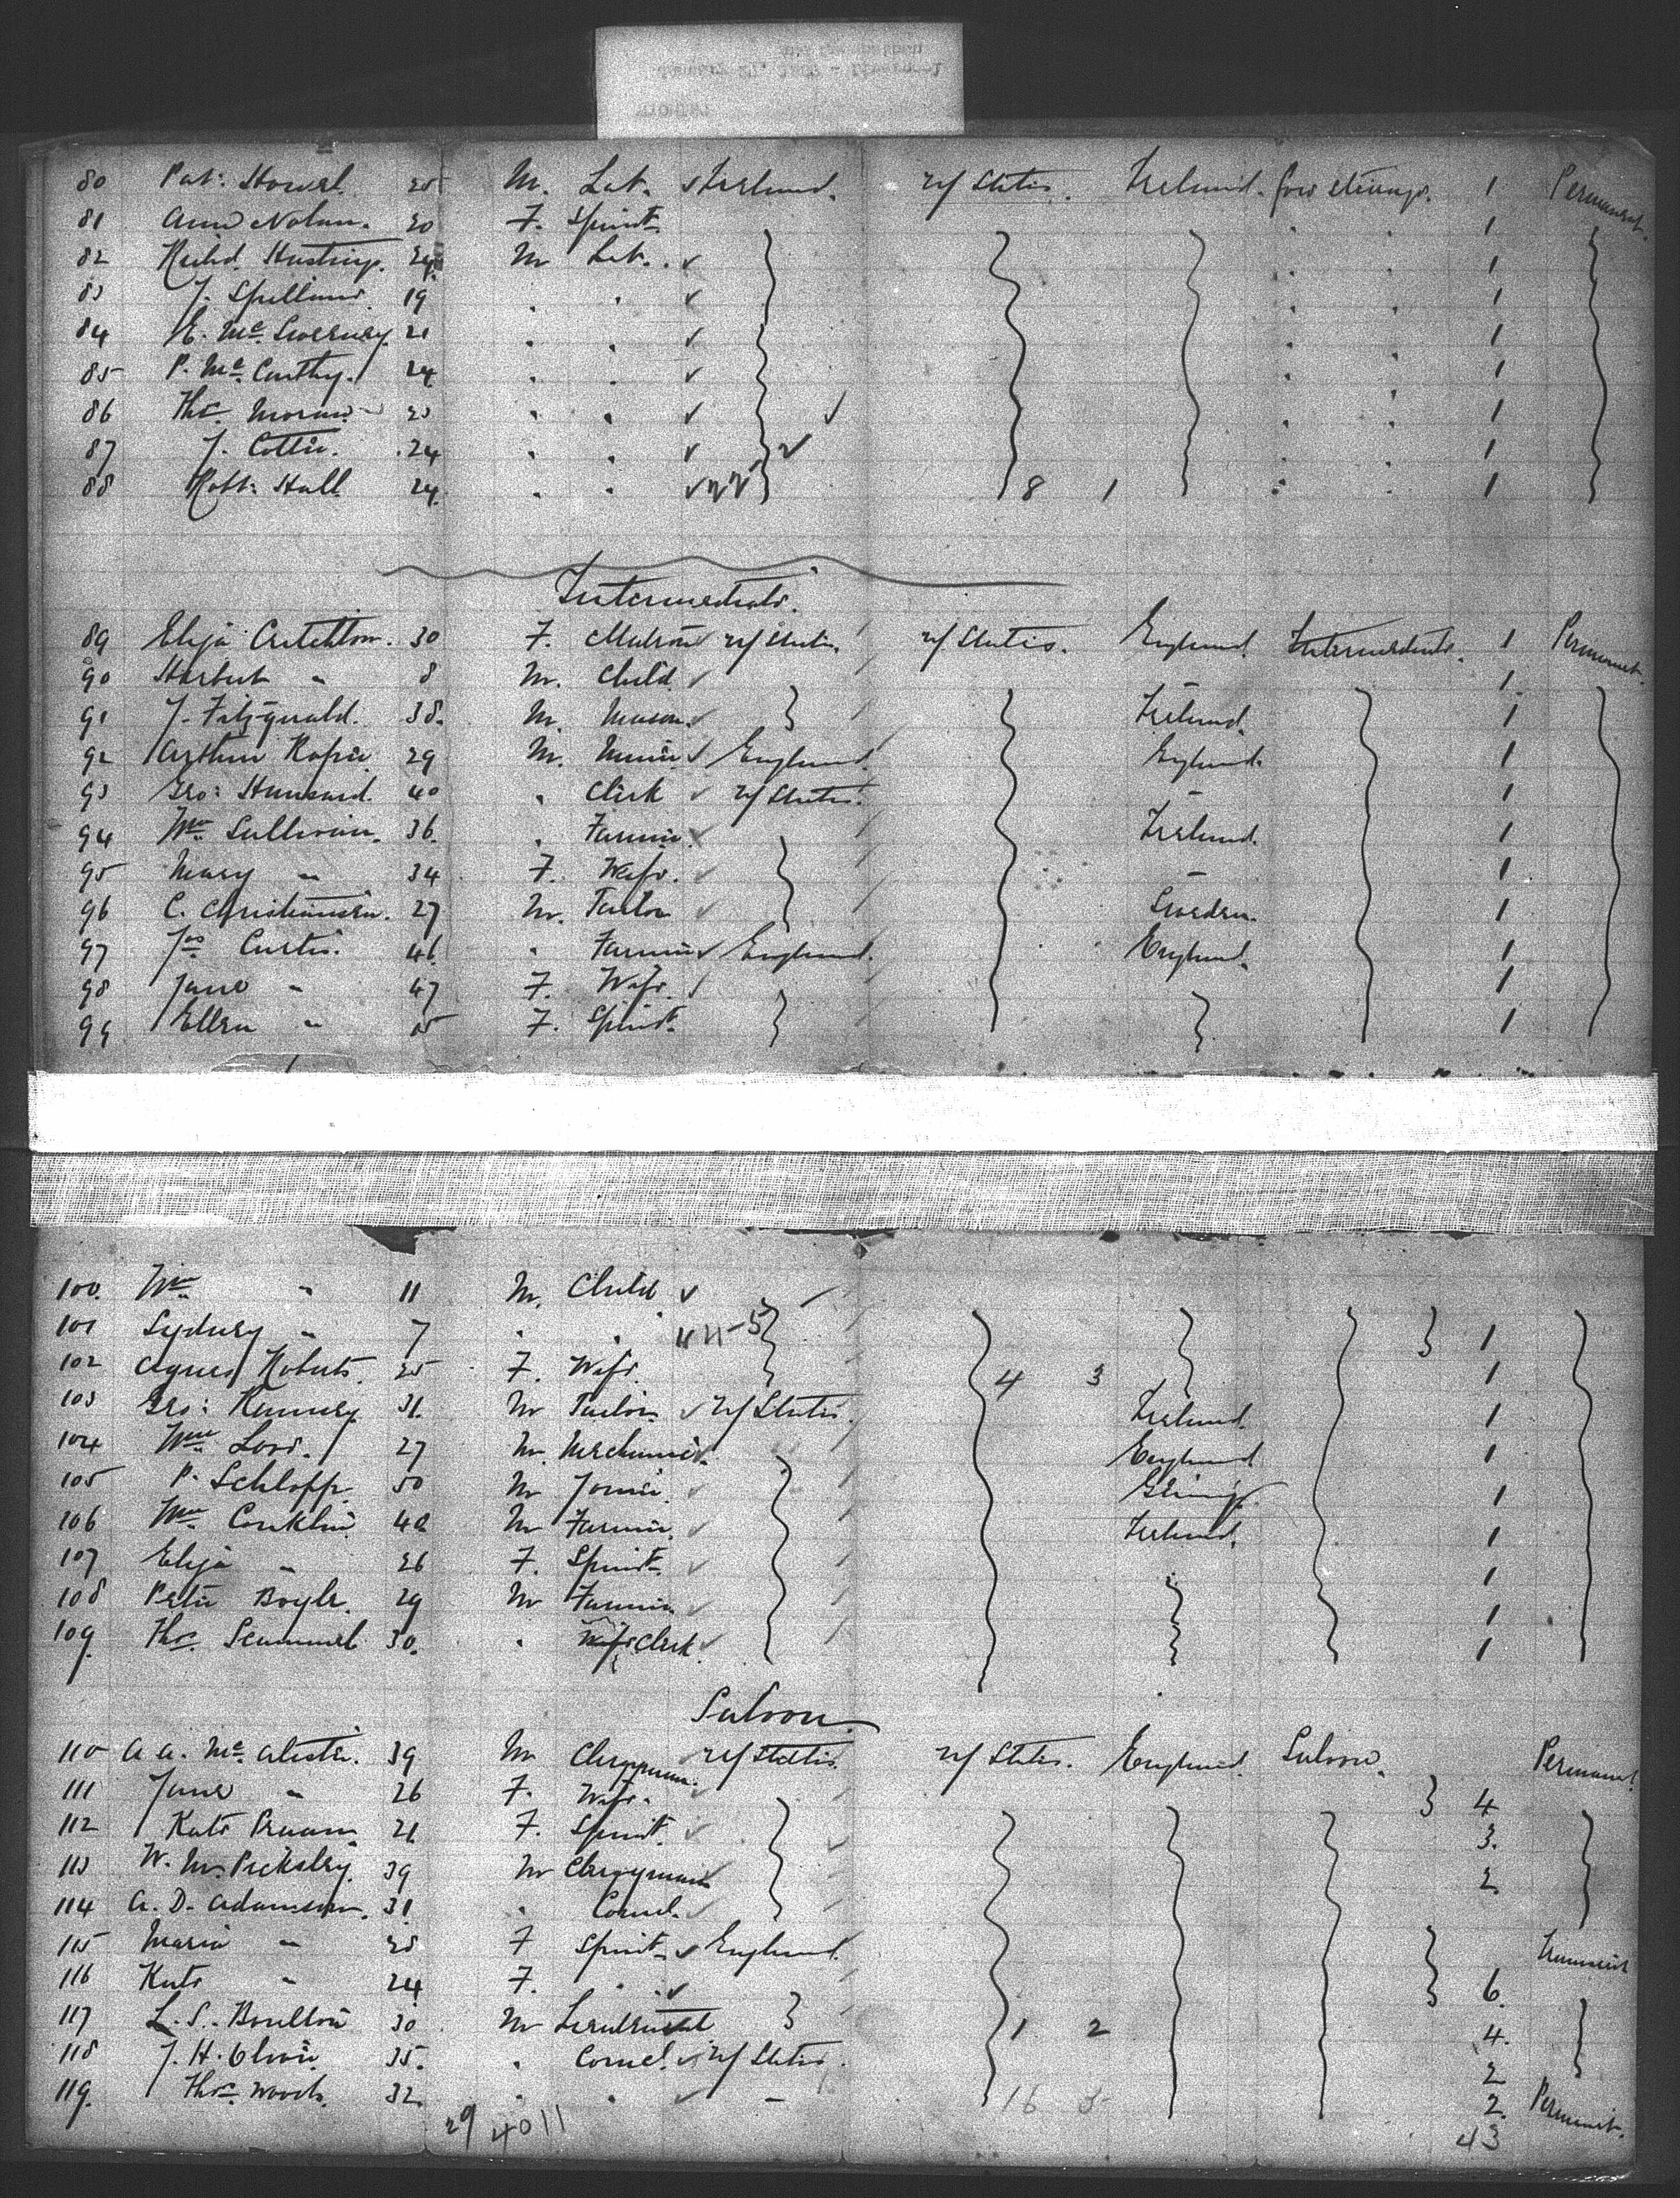 80 Pat: 25 M. Lab. Ireland. U/States. Ireland. 1 Permanent.
81 Ann Nolan. 20 F. Spinst. 1
82 Richd. Hastings. 24 M Lab. 1
83 J. Spillane 19 1
84 E. Mc. Sweeney 21 1
85 P. Mc. Carthy. 24 1
86 Thos. Moran 1
87 J. Cottie. 24 1
88 Robt: Hall 24 8 1 1
Intermediate.
89 Eliza Critchton. 30 F. Matron U/States. U/States. England. Intermediate. 1 Permanent.
90 Herbert " 8 M. Child 1
91 J. Fitzgerald. 38. M. Mason Ireland. 1
92 Arthur 29 M. Miner England. England. 1
93 Geo: 40 " Clerk U/States. 1
94 Wm. Sullivan. 36. " Farmer Ireland. 1
95 Mary " 34 F. Wife. 1
96 C. Christiansen. 27 M. Tailor Sweden. 1
97 Jas Curtis. 46 " Farmer England. England. 1
98 Jane " 47 F. Wife. 1
99 Ellen " 15 F. Spinst. 1
100. Wm " 11 M. Child
101 Sydney " 7 1
102 Agnes Roberts. 25 F. Wife. 4 3 1
103 Geo: Kenney 31. M Tailor U/States. Ireland. 1
104 Wm Love. 27 M. Mechanic England 1
105 P. Schlopp. 50 M Joiner. 1
106 Wm Conklin 40 M Farmer. Ireland. 1
107 Eliza " 26 F. Spinst. 1
108 Peter Boyle. 29 M Farmer 1
109. Thos. Scammel 30. " Clerk. 1
Saloon.
110 A A. Mc. Alister. 39 M Clergyman. U/States. U/States. England. Saloon. Permanent.
111 Jane " 26 F. Wife. 4
112 Kate 21 F. Spinst. 3.
113 W. M. Picksley. 39 M Clergyman 2
114 A. D. Adamson. 31. "
115 Maria " 28 F Spinst. England.
116 Kate " 24 F. " 6.
117 L. S. Boulton 30 M Lieutenant 1 2 4.
118 J. H. Oliver 35. " U/States. 2
119. Thos. Woods. 32. " " 16 3 2. Permanent.
29 4011 43